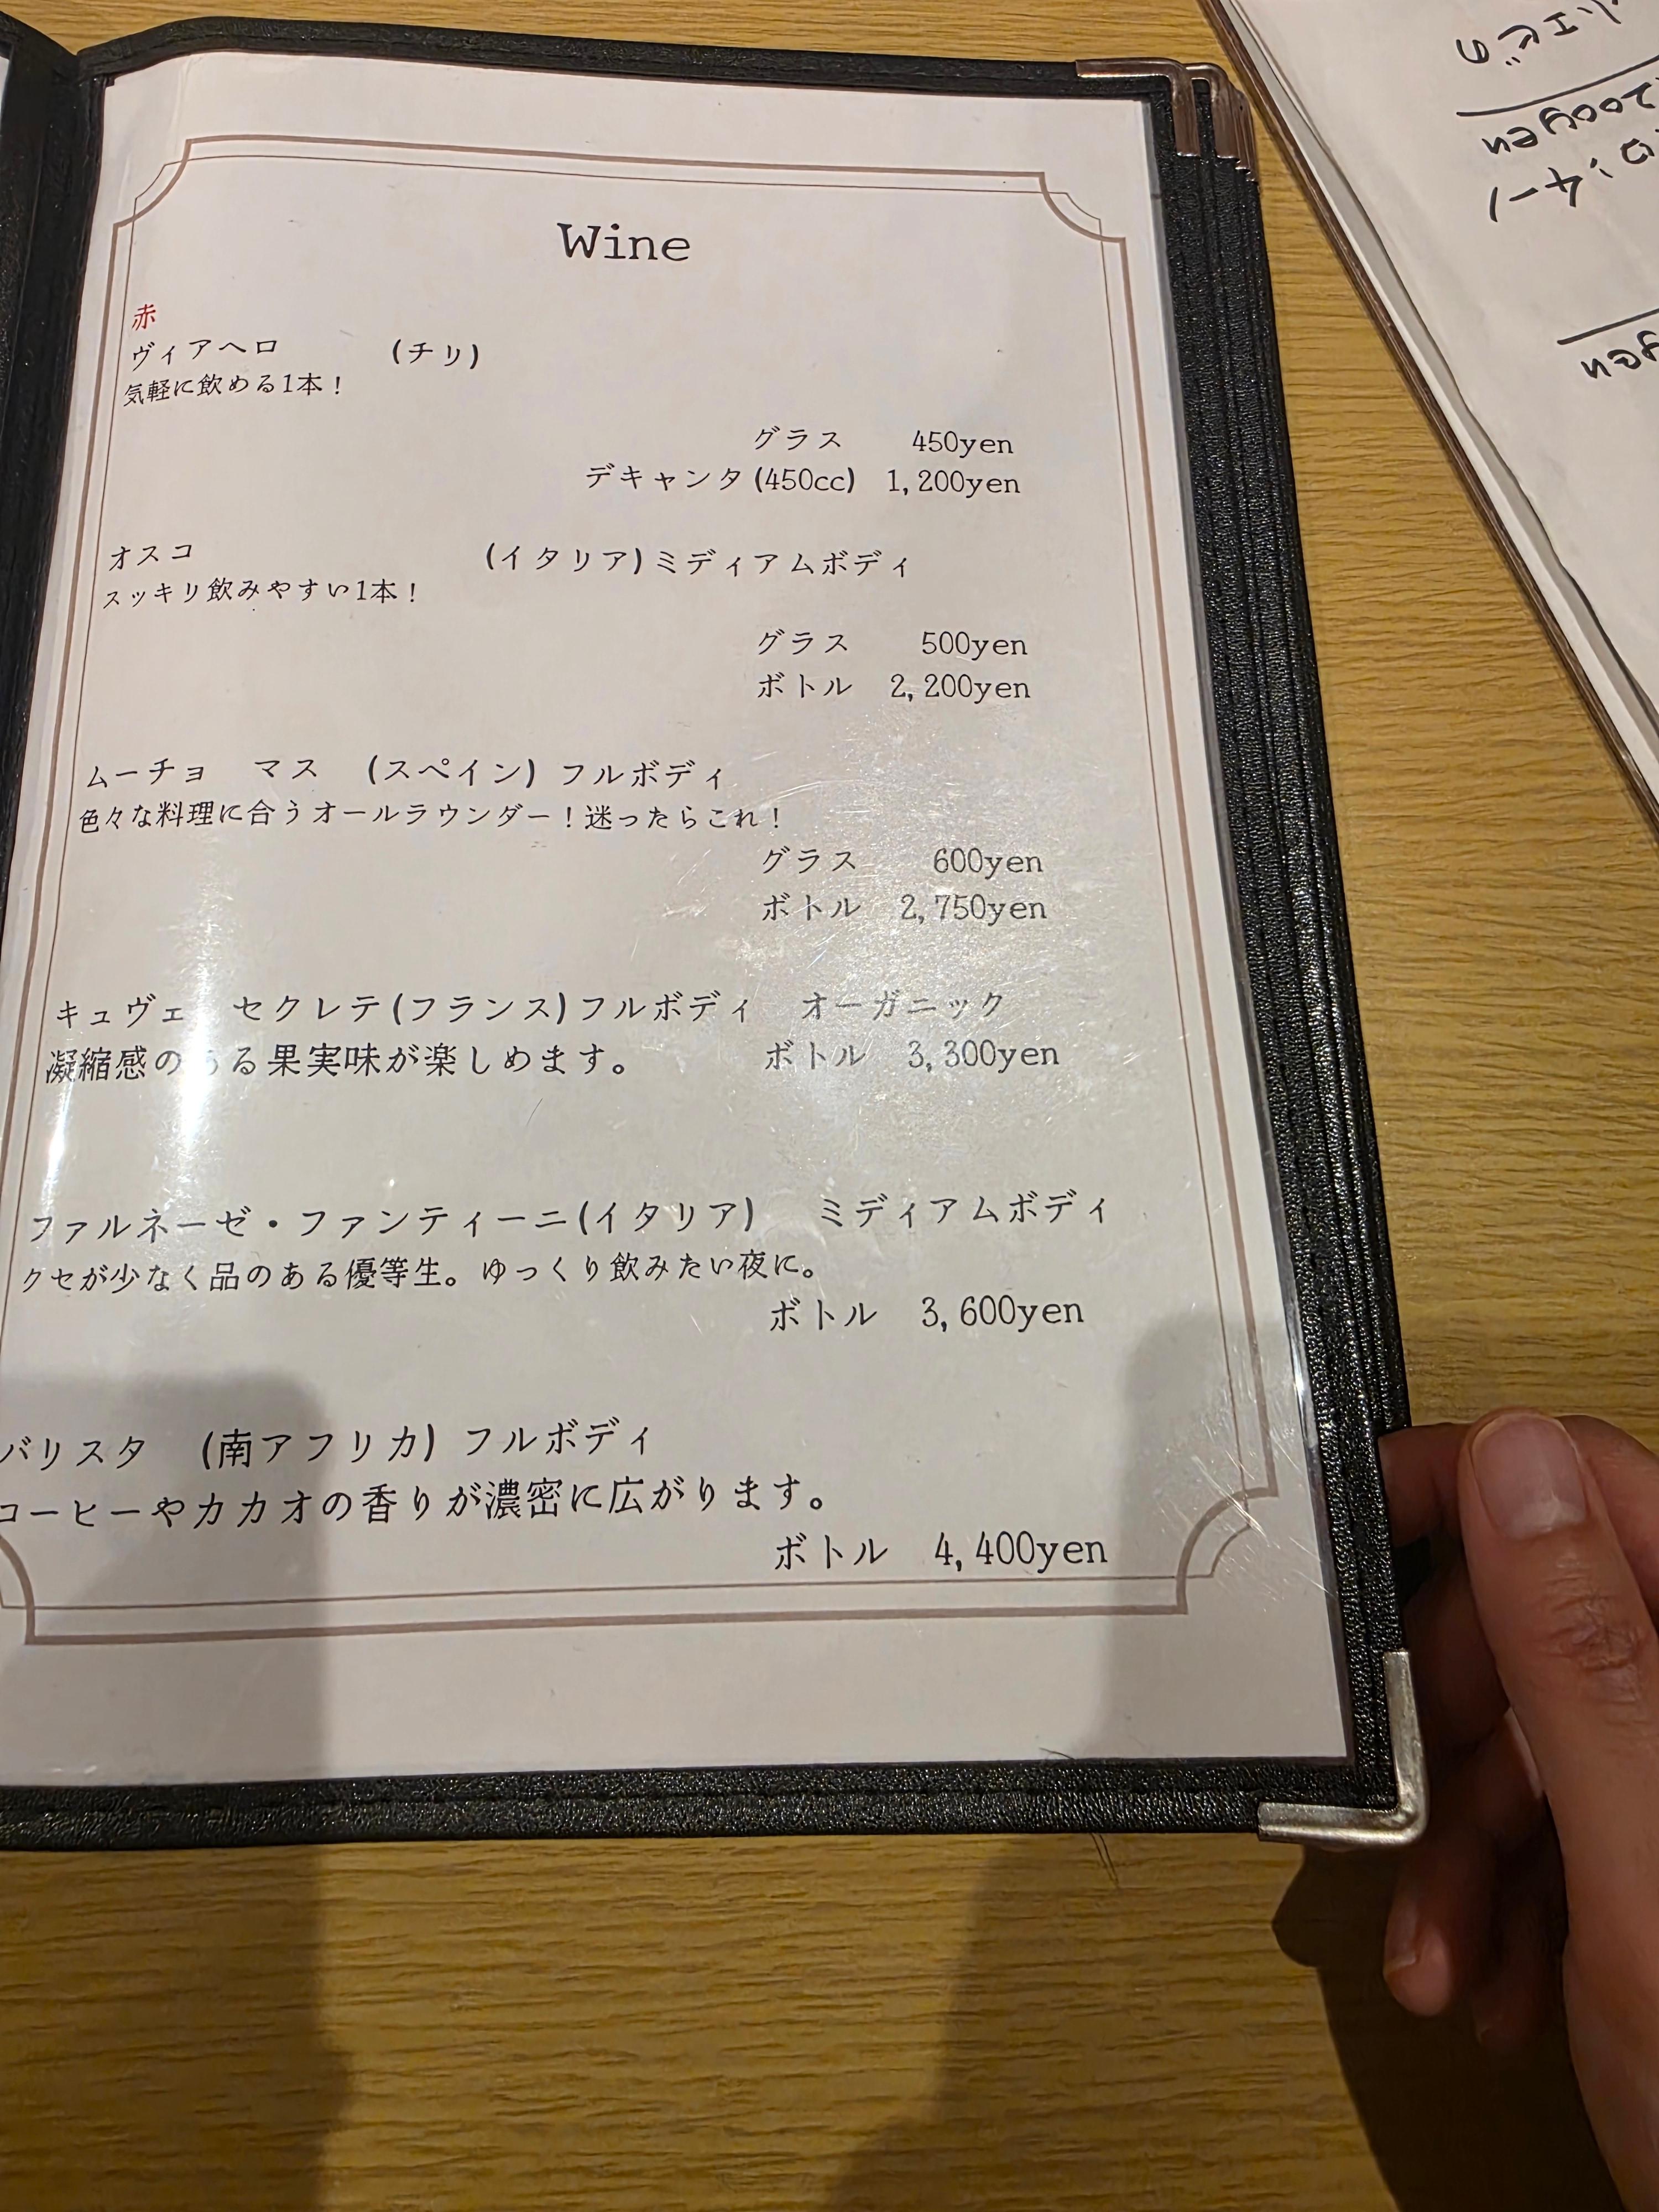 Wine
赤
ヴィアヘロ (チリ)
気軽に飲める1本！
グラス 450yen
デキャンタ(450cc) 1,200yen
オスコ (イタリア)ミディアムボディ
スッキリ飲みやすい1本！
グラス 500yen
ボトル 2,200yen
ムーチョ マス (スペイン) フルボディ
色々な料理に合うオールラウンダー！迷ったらこれ！
グラス 600yen
ボトル 2,750yen
キュヴェ セクレテ(フランス)フルボディ オーガニック
凝縮感のある果実味が楽しめます。 ボトル 3,300yen
ファルネーゼ・ファンティーニ(イタリア) ミディアムボディ
クセが少なく品のある優等生。ゆっくり飲みたい夜に。
ボトル 3,600yen
バリスタ (南アフリカ) フルボディ
コーヒーやカカオの香りが濃密に広がります。
ボトル 4,400yen
200yen
yen